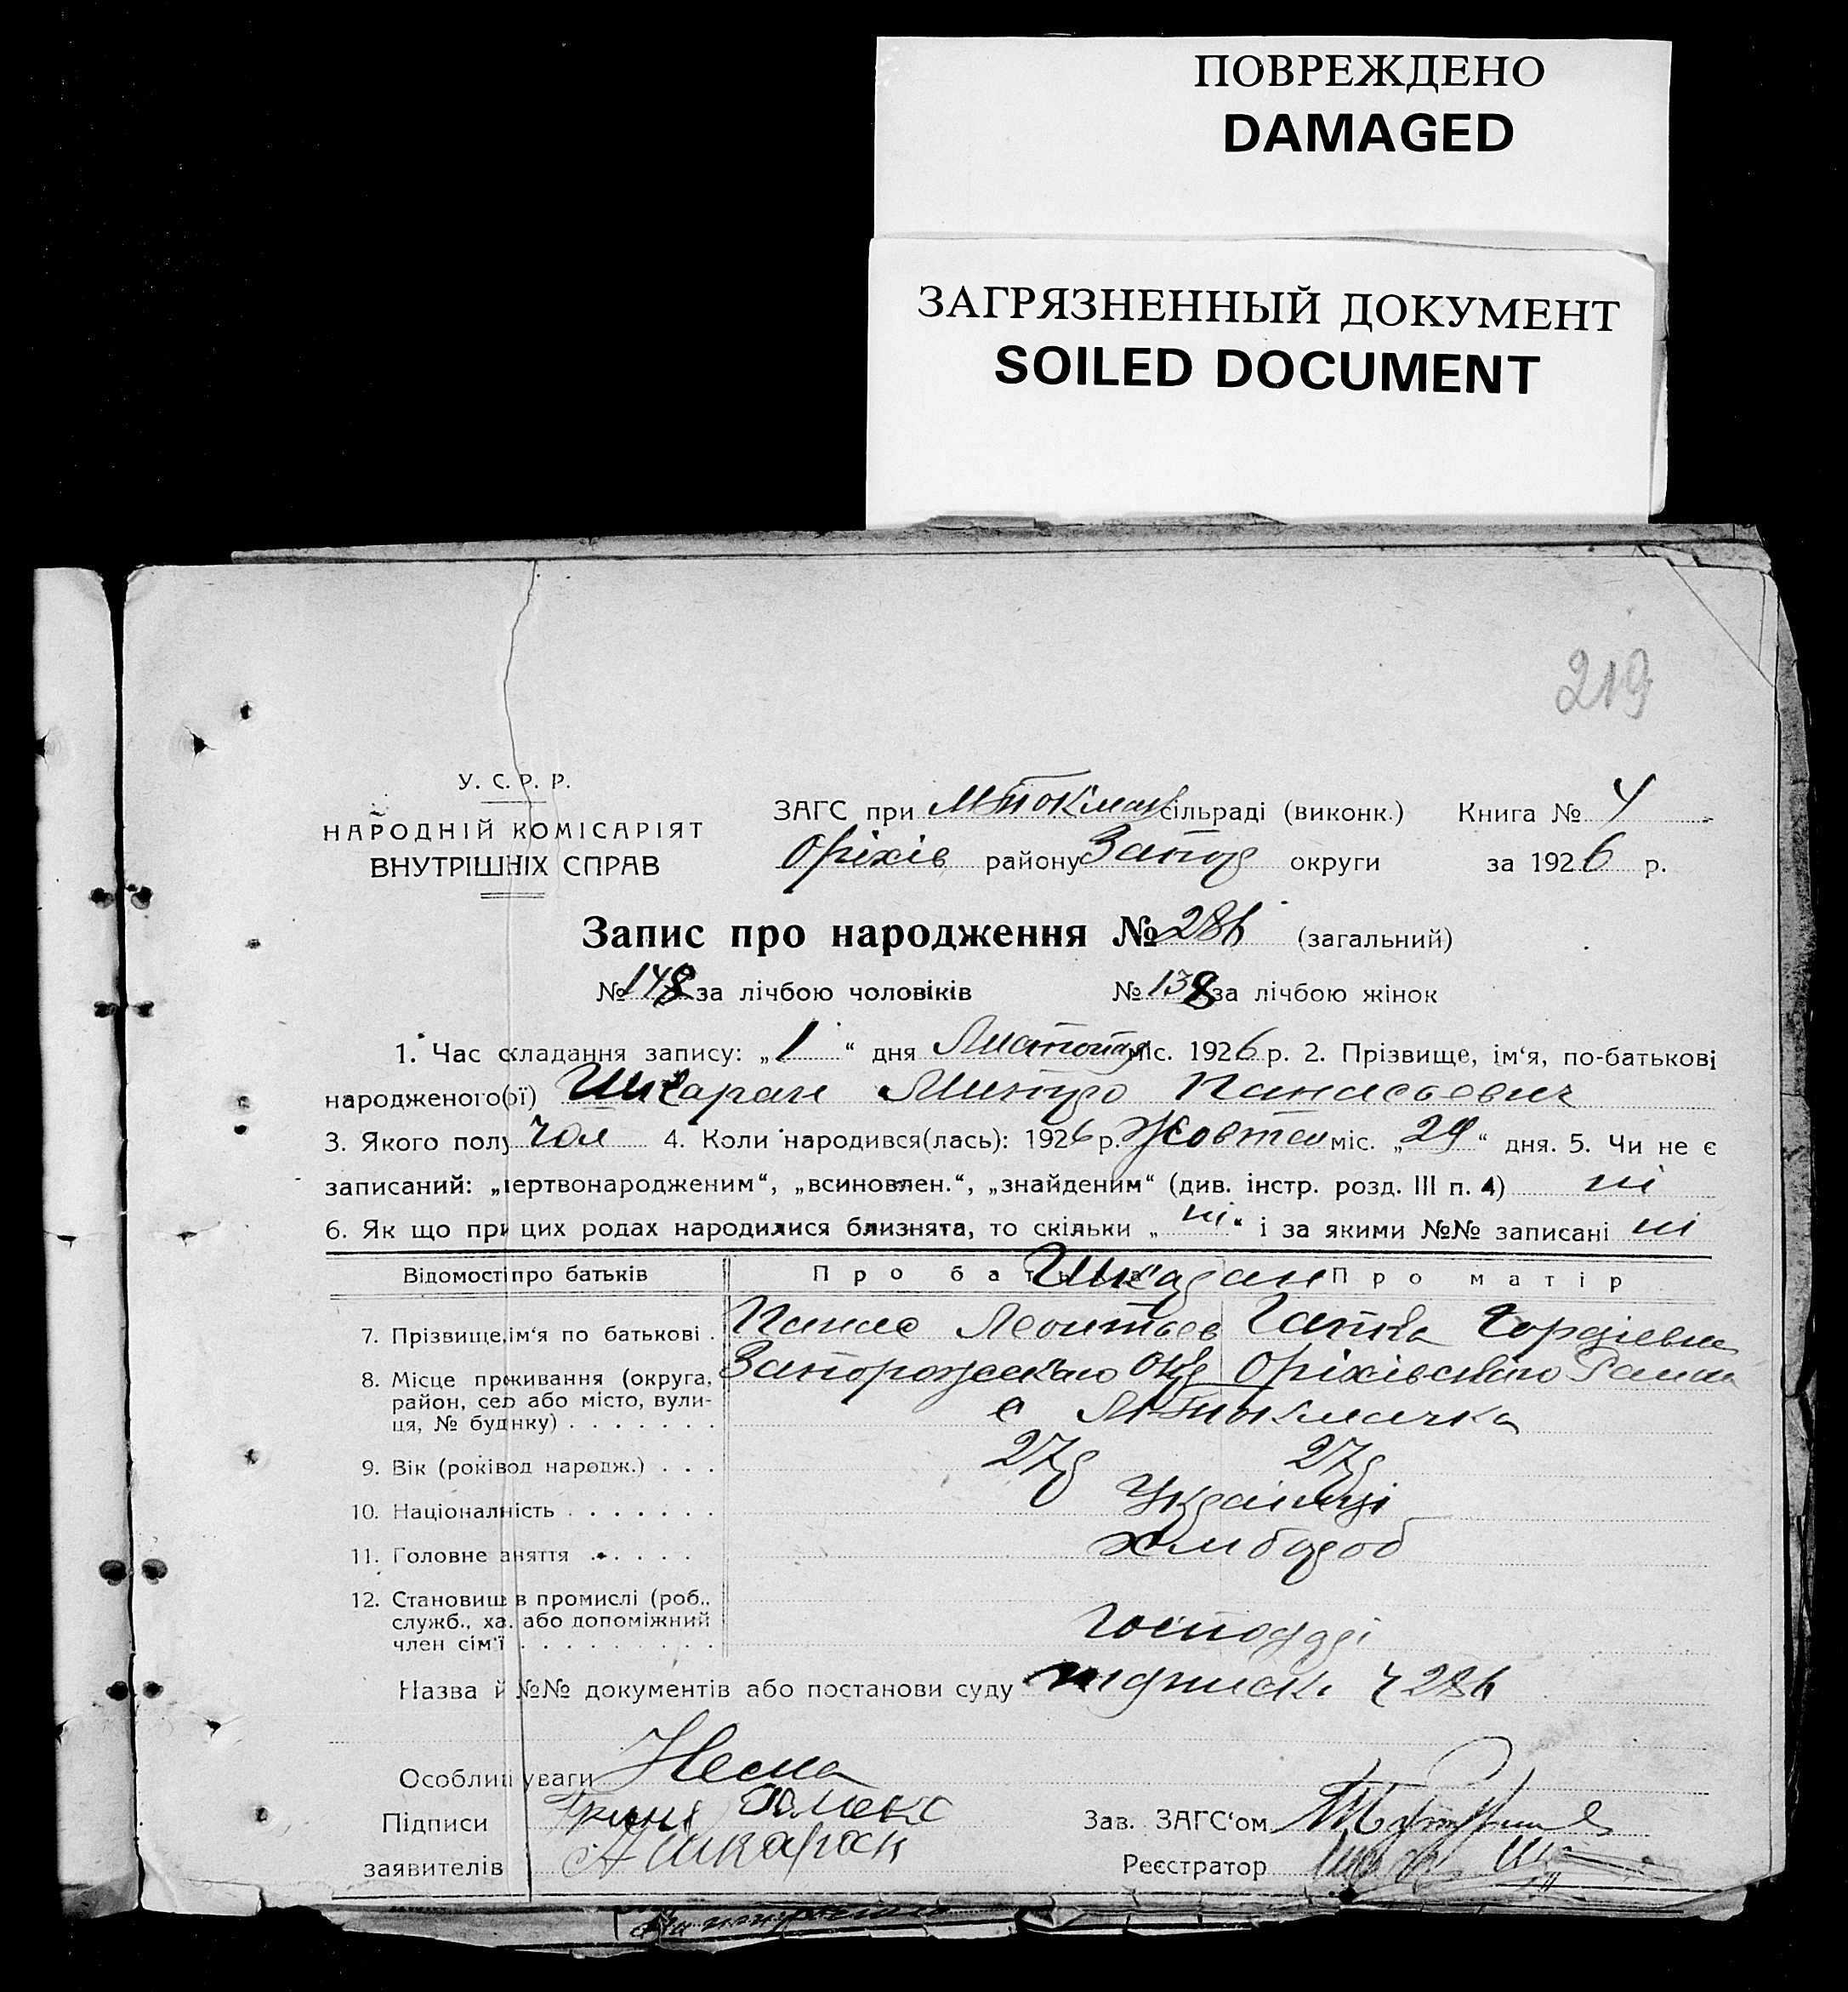 ПОВРЕЖДЕНО
DAMAGED
ЗАГРЯЗНЕННЫЙ ДОКУМЕНТ
SOILED DOCUMENT
219
У. С. Р. Р.
НАРОДНІЙ КОМІСАРІЯТ
ВНУТРІШНІХ СПРАВ
ЗАГС при сільраді (виконк.) Книга № 4
Оріхів району Запор округи за 1926 р.
Запис про народження № 286 (загальний)
№ 148 за лічбою чоловіків № 138 за лічбою жінок
1. Час складання запису: „1“ дня Листопад міс. 1926 р. 2. Прізвище, ім‘я, по-батькові
народженого(ої) Шкаран Дмитро Панасьевич
3. Якого полу чол 4. Коли народився(лась): 1926 р. Жовтен міс. „29“ дня. 5. Чи не є
записаний: „мертвонародженим“, „всиновлен.“, „знайденим“ (див. інстр. розд. III п. 4) ні
6. Як що при цих родах народилися близнята, то скільки „ні“ і за якими №№ записані ні
Відомості про батьків Про батька Про матір
Шкаран
7. Прізвище, ім‘я по батькові . Панас Леонтьев Гапка Гордіевна
8. Місце проживання (округа, Запорожського Окр Оріхівського Району
район, село або місто, вули- с М Токмачка
ця, № будинку) . . . . . . .
9. Вік (років од народж.) . . . 27р 27р
10. Національність . . . . . . . Українці
11. Головне заняття . . . . . хлібороб
12. Становище в промислі (роб.,
служб., ха. або допоміжний
член сім‘ї . . . . . . . . . Господарі
Назва й №№ документів або постанови суду 286
Особлив уваги Нема
Підписи
заявителів А Шкаран
Зав. ЗАГС‘ом
Реєстратор